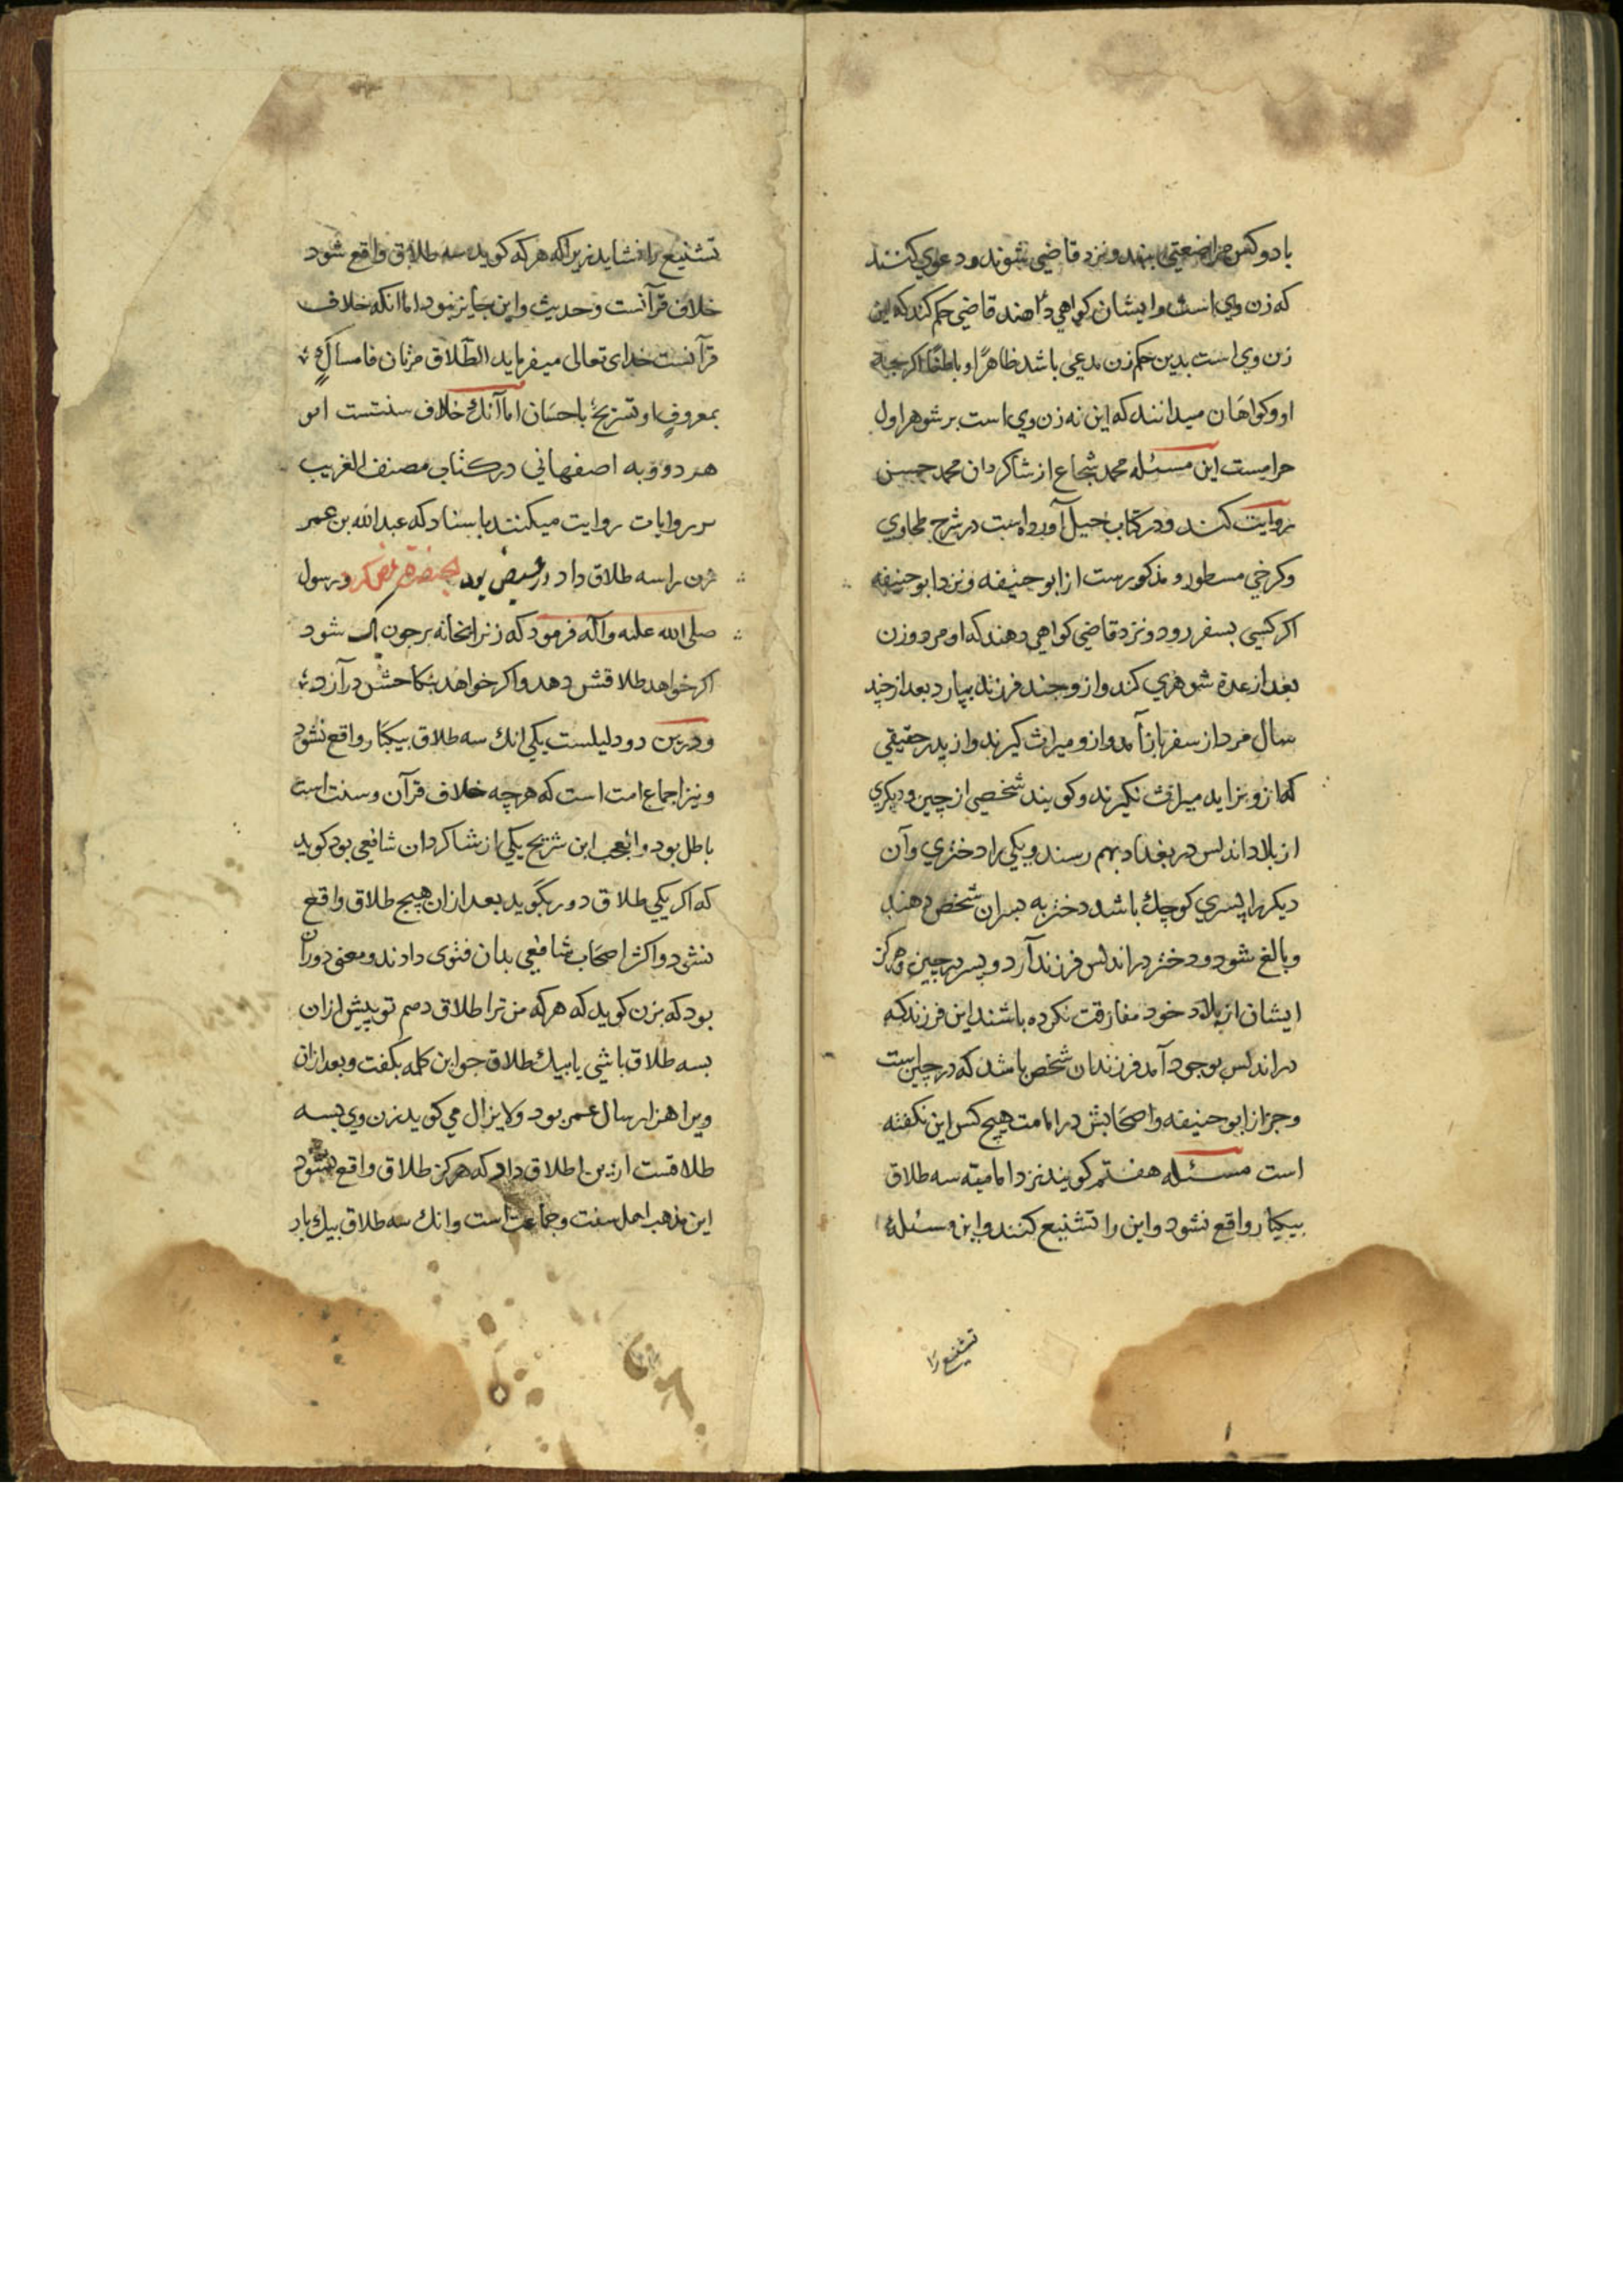 با دو کس مراضعتی بنهد و نزد قاضی شوند و دعوی کنند
که زن وی است و ایشان کواهی دهند قاضی حکم کند که این
زن وی است بدین حکم زن مدعی باشد ظاهرًا و باطنًا اکرچه
او و کواهان میدانند که این نه زن وی است بر شوهر اول
حرامست این مسئله محمد شجاع از شاکردان محمد حسن
روایت کند و در کتاب حیل آورده است در شرح طحاوی
و کرخی مسطور و مذکورست از ابو حنیفه و نزد ابو حنیفه
اکر کسی بسفر رود و نزد قاضی کواهی دهند که او مرد و زن
بعد از عدة شوهری کند و از و جند فرزند بیارد بعد از چند
سال مرد از سفر باز آمد و از و میراث کیرند و از پدر حقیقی
که از و بزاید میراث نکیرند و کویند شخصی از چین و دیکری
از بلاد اندلس در بغداد بهم رسند و یکی را دختری و آن
دیکر را پسری کوچك باشد دختر به پسر آن شخص دهند
و بالغ شود و دختر در اندلس فرزند آرد و پسر در چین و هرکز
ایشان از بلاد خود مفارقت نکرده باشند این فرزند که
در اندلس بوجود آمد فرزند آن شخص باشد که در چین است
و جز از ابو حنیفه و اصحابش در امامت هیچ کس این نکفته
است مسئله هفتم کویند نزد امامیّه سه طلاق
بیکبار واقع نشود و این را تشنیع کنند و این مسئله
تشنیع را
تشنیع را نشاید زیرا که هر که کوید سه طلاق واقع شود
خلاف قرآنست و حدیث و این جایز نبود اما انکه خلاف
قرآنست خدای تعالی میفرماید الطّلاق مرّتان فامساكٌ
بمعروفٍ او تسریحٌ باحسَان اما آنك خلاف سنتست ابو
هر دوویه اصفهانی در کتاب مصنف الغریب
روایات روایت میکنند باسناد که عبدالله بن عمر
زن را سه طلاق داد در حیض بود و رسول
صلی الله علیه و آله فرمود که زن را بخانه بر جون پاک شود
اکر خواهد طلاقش دهد و اکر خواهد بنکاحش در آرد
و درین دو دلیلست یکی انك سه طلاق بیکبار واقع نشود
و نیز اجماع امت است که هرچه خلاف قرآن و سنت است
باطل بود و العجب ابن شریح یکی از شاکردان شافعی بود کوید
که اکر یکی طلاق دور بکوید بعد از ان هیچ طلاق واقع
نشود و اکثر اصحاب شافعی بدان فتوی دادند و معنی دور آن
بود که بزن کوید که هر که من ترا طلاق دهم تو پیش از ان
بسه طلاق باشی یا بیك طلاق جو این کلمه بکفت و بعد از ان
ویرا هزار سال عمر بود و لایزال می کوید زن وی بسه
طلاقست این طلاق داد که هرکز طلاق واقع نشود
این مذهب اهل سنت و جماعت است و انك سه طلاق بیك بار